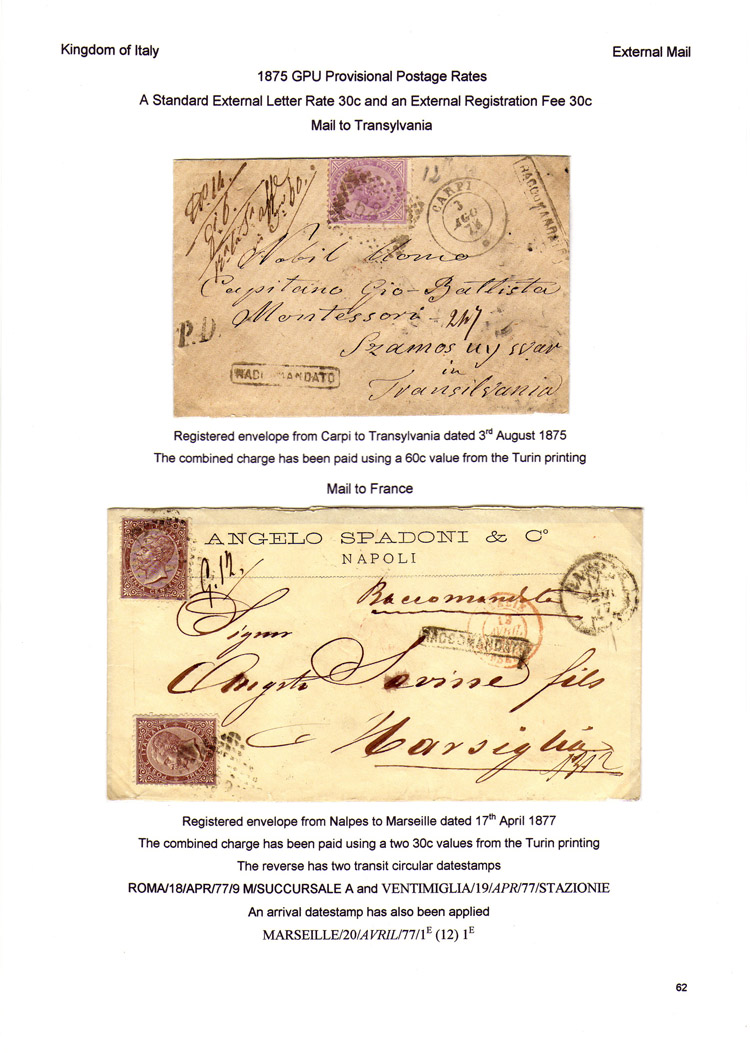 Kingdom of Italy
External Mail
1875 GPU Provisional Postage Rates
A Standard External Letter Rate 30c and an External Registration Fee 30c
Mail to Transylvania
12
CARPI
3
AGO
RACCOMANDATO
Nobil Uomo
Capitano Gio-Battista
Montessori - 247
P.D.
Szamos uj svar
in
Transilvania
RACCOMANDATO
Registered envelope from Carpi to Transylvania dated 3rd August 1875
The combined charge has been paid using a 60c value from the Turin printing
Mail to France
ANGELO SPADONI & Co
NAPOLI
Raccomandata
RACCOMANDATO
Signor
fils
Marsiglia
Registered envelope from Nalpes to Marseille dated 17th April 1877
The combined charge has been paid using a two 30c values from the Turin printing
The reverse has two transit circular datestamps
ROMA/18/APR/77/9 M/SUCCURSALE A and VENTIMIGLIA/19/APR/77/STAZIONIE
An arrival datestamp has also been applied
MARSEILLE/20/AVRIL/77/1E (12) 1E
62